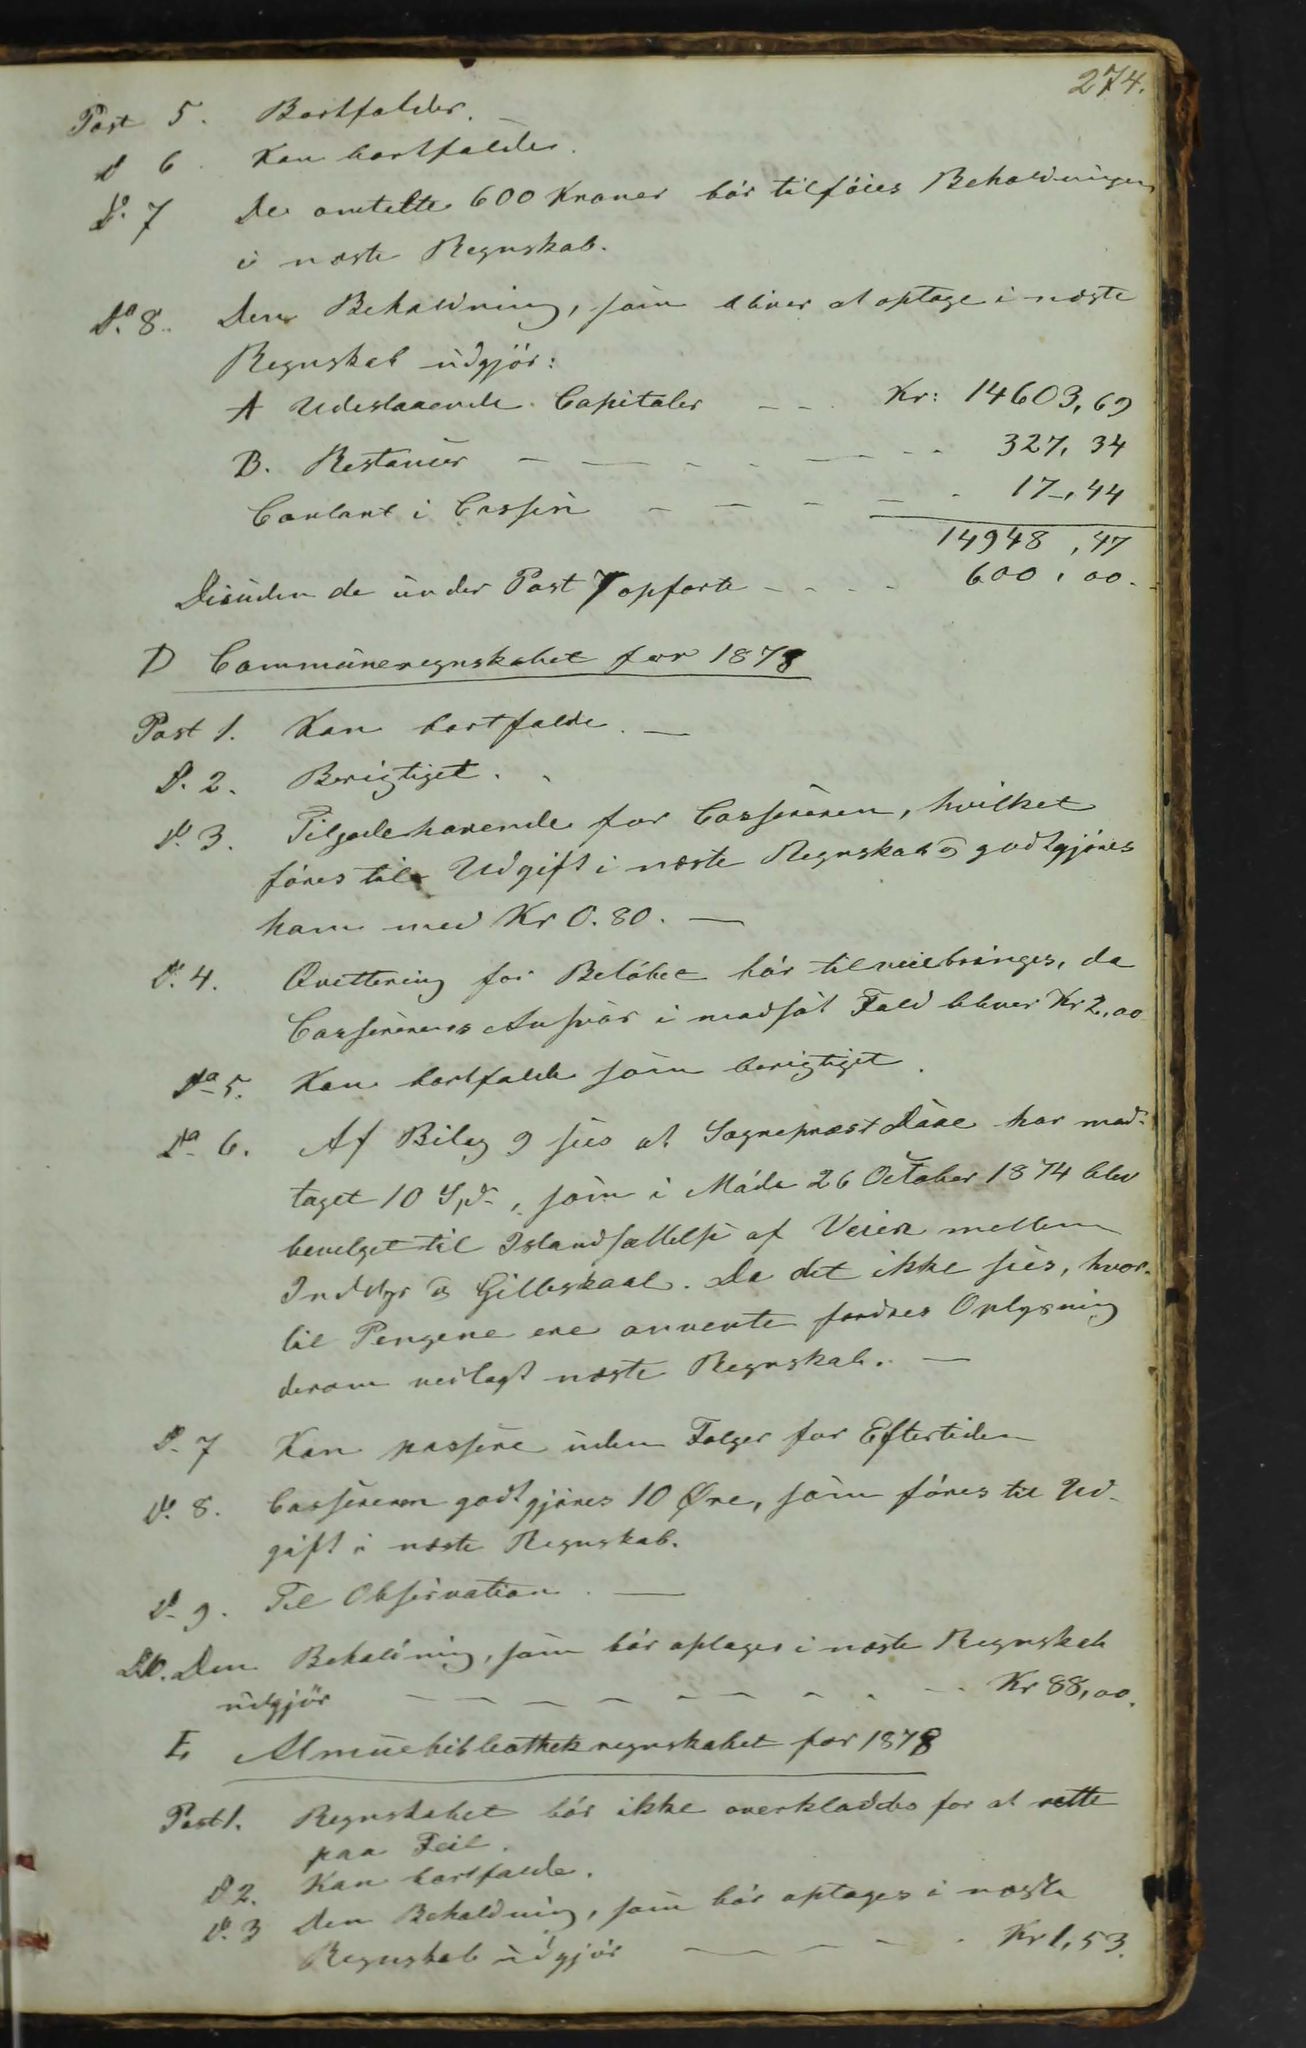 274.
Post 5. Bortfalder.
Do 6. Kan bortfalder.
Do. 7 De omtalte 600 Kroner bór tilfóies Beholdningen
i næste Regnskab.
Do. 8. Den Beholdning, som bliver at optage i næste
Regnskab udgjór:
A Udestaaende Capitaler - - Kr: 14603,69
B. Restancer - - - - - - - 327,34
Contant i Cassen - - - - - 17,44
14948,47
Desuden de under Post 7 opførte - - - - 600,00.
D Communeregnskabet for 1878
Post 1. Kan bortfalde. —
Do. 2. Berigtiget.
Do. 3. Tilgodehavende for Cassereren, hvilket
fóres til Udgift i næste Regnskab og godtgjóres
ham med Kr 0.80. —
Do. 4. Qvittering for Belóbet bór tilveiebringes, da
Cassererens Ansvar i modsat Fald bliver Kr 2,00
Do 5. Kan bortfalde som berigtiget.
Do 6. Af Bilag 9 sees at Sognepræst Daae har mod-
taget 10 Spd., som i Móde 26 October 1874 blev
bevilget til Istandsættelse af Veien mellem
Inddyr og Gilleskaal. Da det ikke sees, hvor-
til Pengene ere anvente fordres Oplysning
derom vedlagt næste Regnskab. —
Do. 7 Kan passere uden Folger for Eftertiden
Do. 8. Cassereren godtgjóres 10 Øre, som fóres til Ud-
gift i næste Regnskab.
Do. 9. Til Observation. —
Do. 10. Den Beholdning, som bór optages i næste Regnskab
udgjór - - - - - - - - - - Kr 88,00.
E, Almuebibliothekregnskabet for 1878
Post 1. Regnskabet bór ikke overkladdes for at rette
paa Feil.
Do 2. Kan bortfalde.
Do. 3 Den Beholdning, som bór optages i næste
Regnskab udgjór - - - - - Kr 1,53.